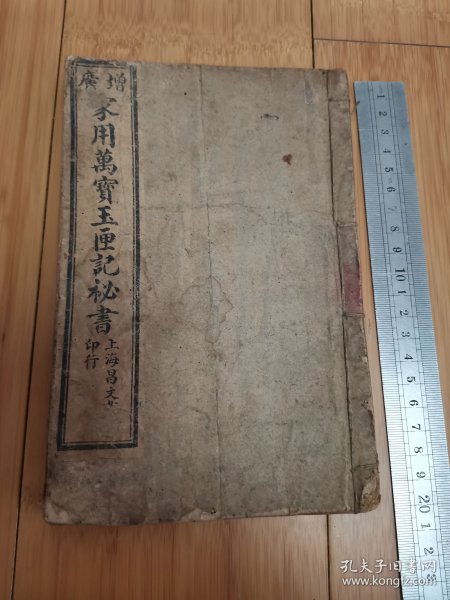 增廣
家用萬寶玉匣記祕書
上海昌文
印行
1 2 3 4 5 6 7 8 9 10 1 2 3 4 5 6 7 8 9 20 1 2 3
孔夫子旧书网
www.kongfz.com